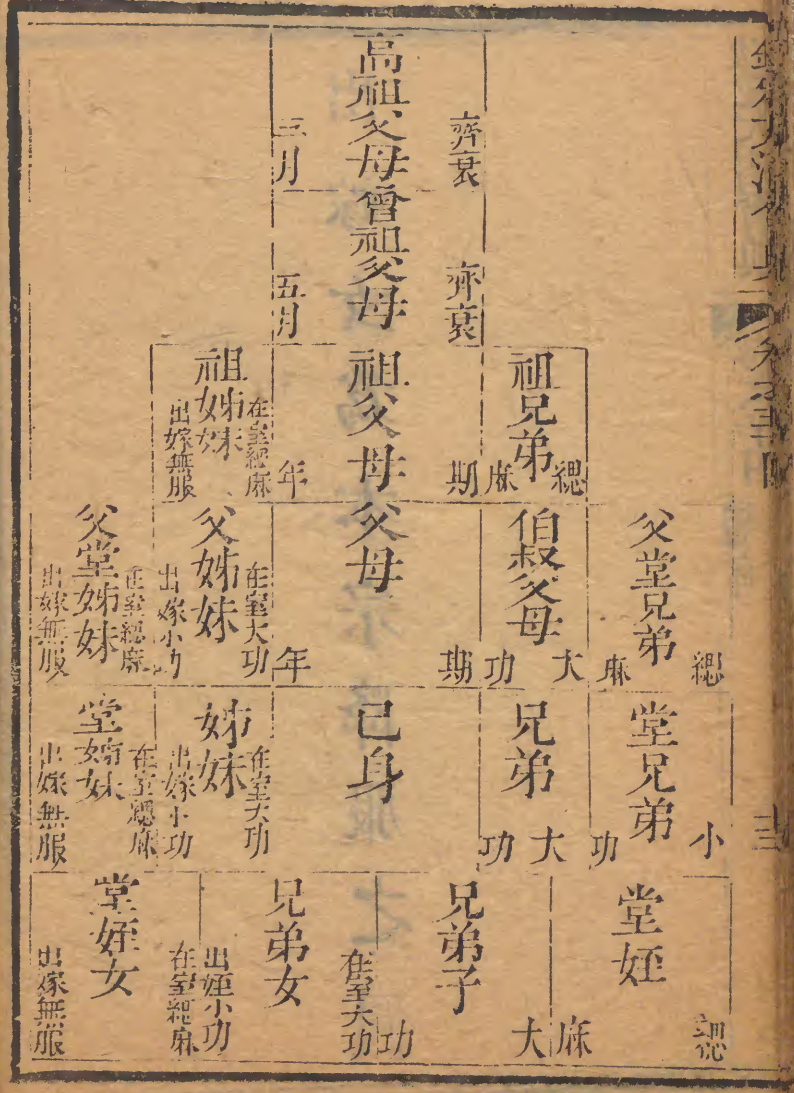 高祖父母
齊衰
三月
曾祖父母
齊衰
五月
祖兄弟
緦麻
祖父母
期年
祖姊妹
在室緦麻
出嫁無服
父堂兄弟
緦麻
伯叔父母
大功
父母
期年
父姊妹
在室大功
出嫁小功
父堂姊妹
在室緦麻
出嫁無服
堂兄弟
小功
兄弟
大功
己身
姊妹
在室大功
出嫁小功
堂姊妹
在室緦麻
出嫁無服
堂姪
緦麻
兄弟子
大功
兄弟女
在室大功
出姪小功
堂姪女
在室緦麻
出嫁無服